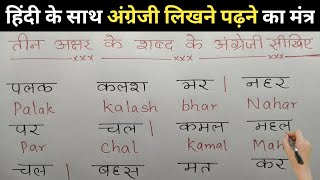 हिंदी के साथ अंग्रेजी लिखने पढ़ने का मंत्र
तीन अक्षर के शब्द के अंग्रेजी सीखिए
xxx xxx
पलक कलश भर | नहर
Palak kalash bhar Nahar
पर चल | कमल महल
Par chal kamal Mah
चल | बहस मत कर